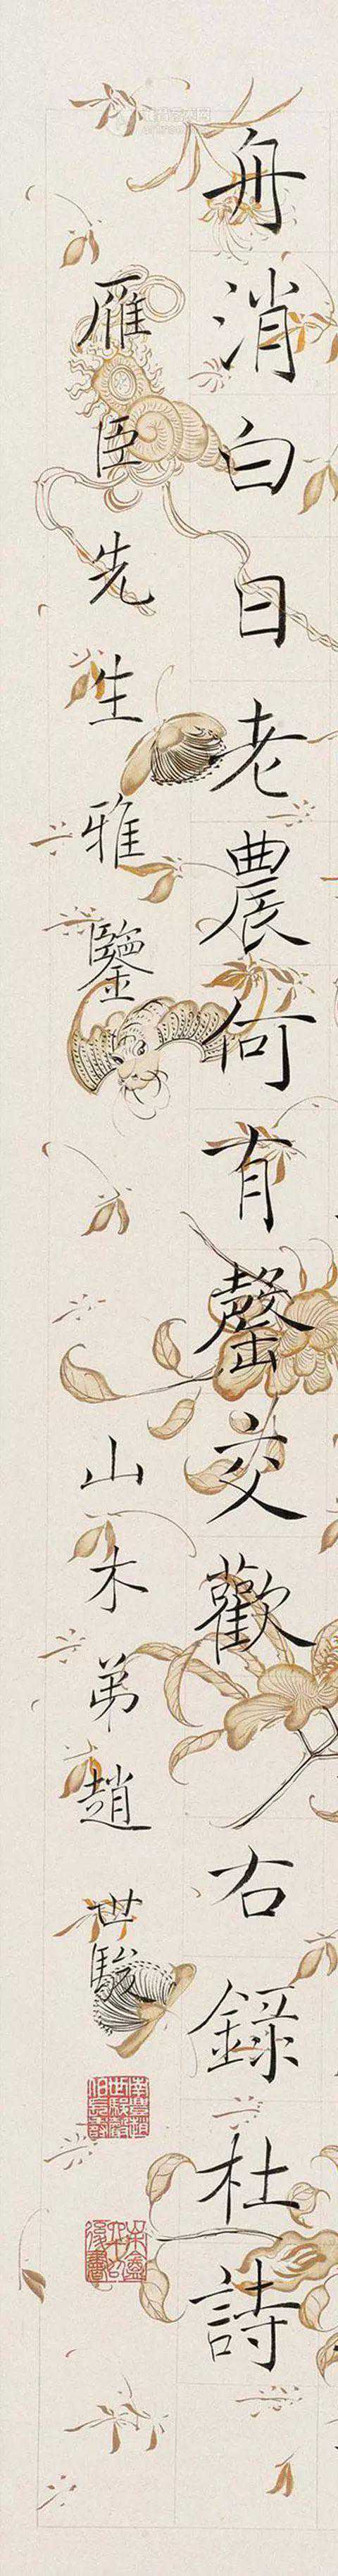 舟消白日老農何有罄交歡右錄杜詩
雁臣先生雅鑒山木弟趙世駿